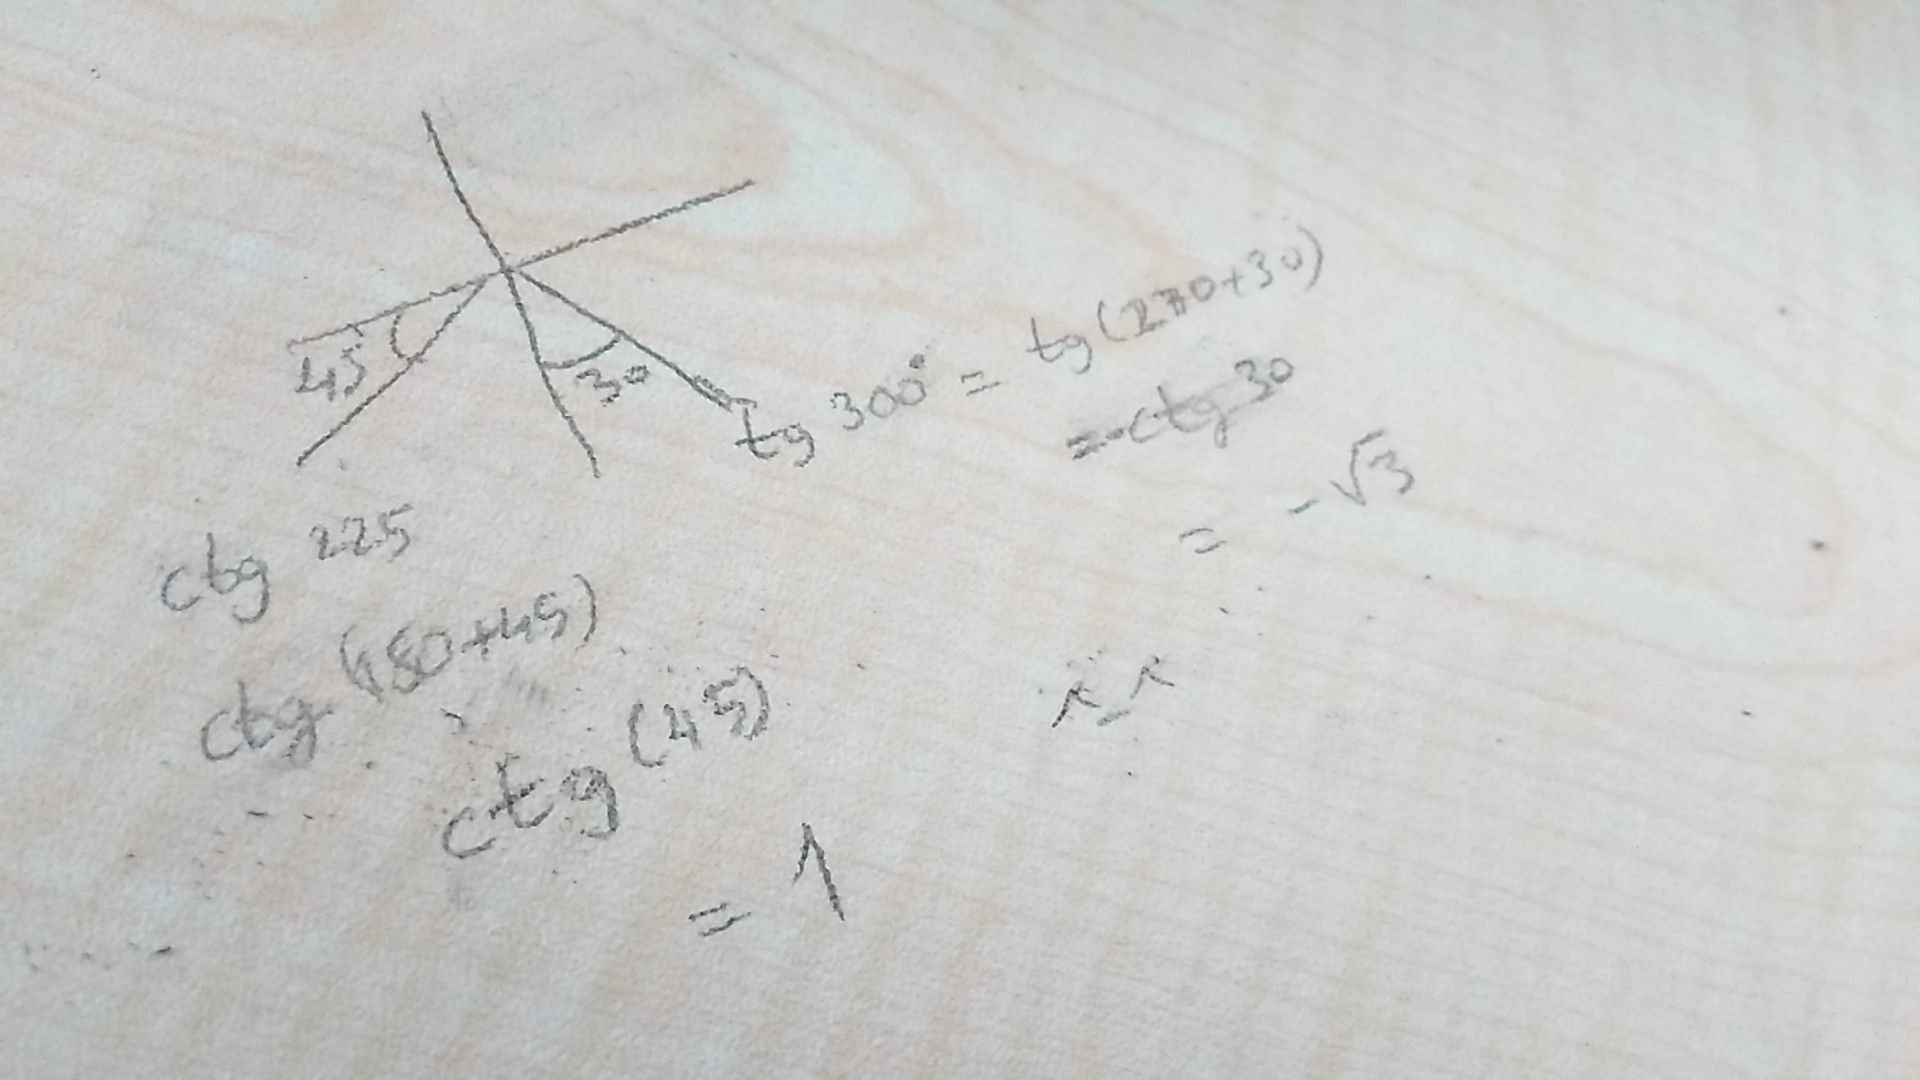 45
30
tg 300° = tg(270+30)
=-ctg 30
= -√3
ctg 225
ctg (180+45)
ctg (45)
= 1
^_^